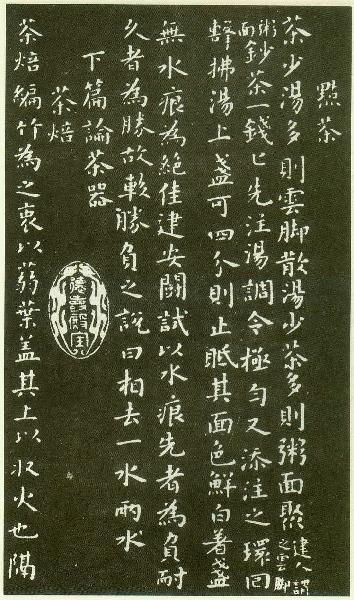 點茶
茶少湯多則雲脚散湯少茶多則粥面聚建人謂之雲脚
粥面鈔茶一錢匕先注湯調令極勻又添注之環回
擊拂湯上盞可四分則止眡其面色鮮白著盞
無水痕為絕佳建安鬭試以水痕先者為負耐
久者為勝故較勝負之說曰相去一水兩水
下篇論茶器
茶焙
德壽殿寶
茶焙編竹為之裹以蒻葉盖其上以収火也隔